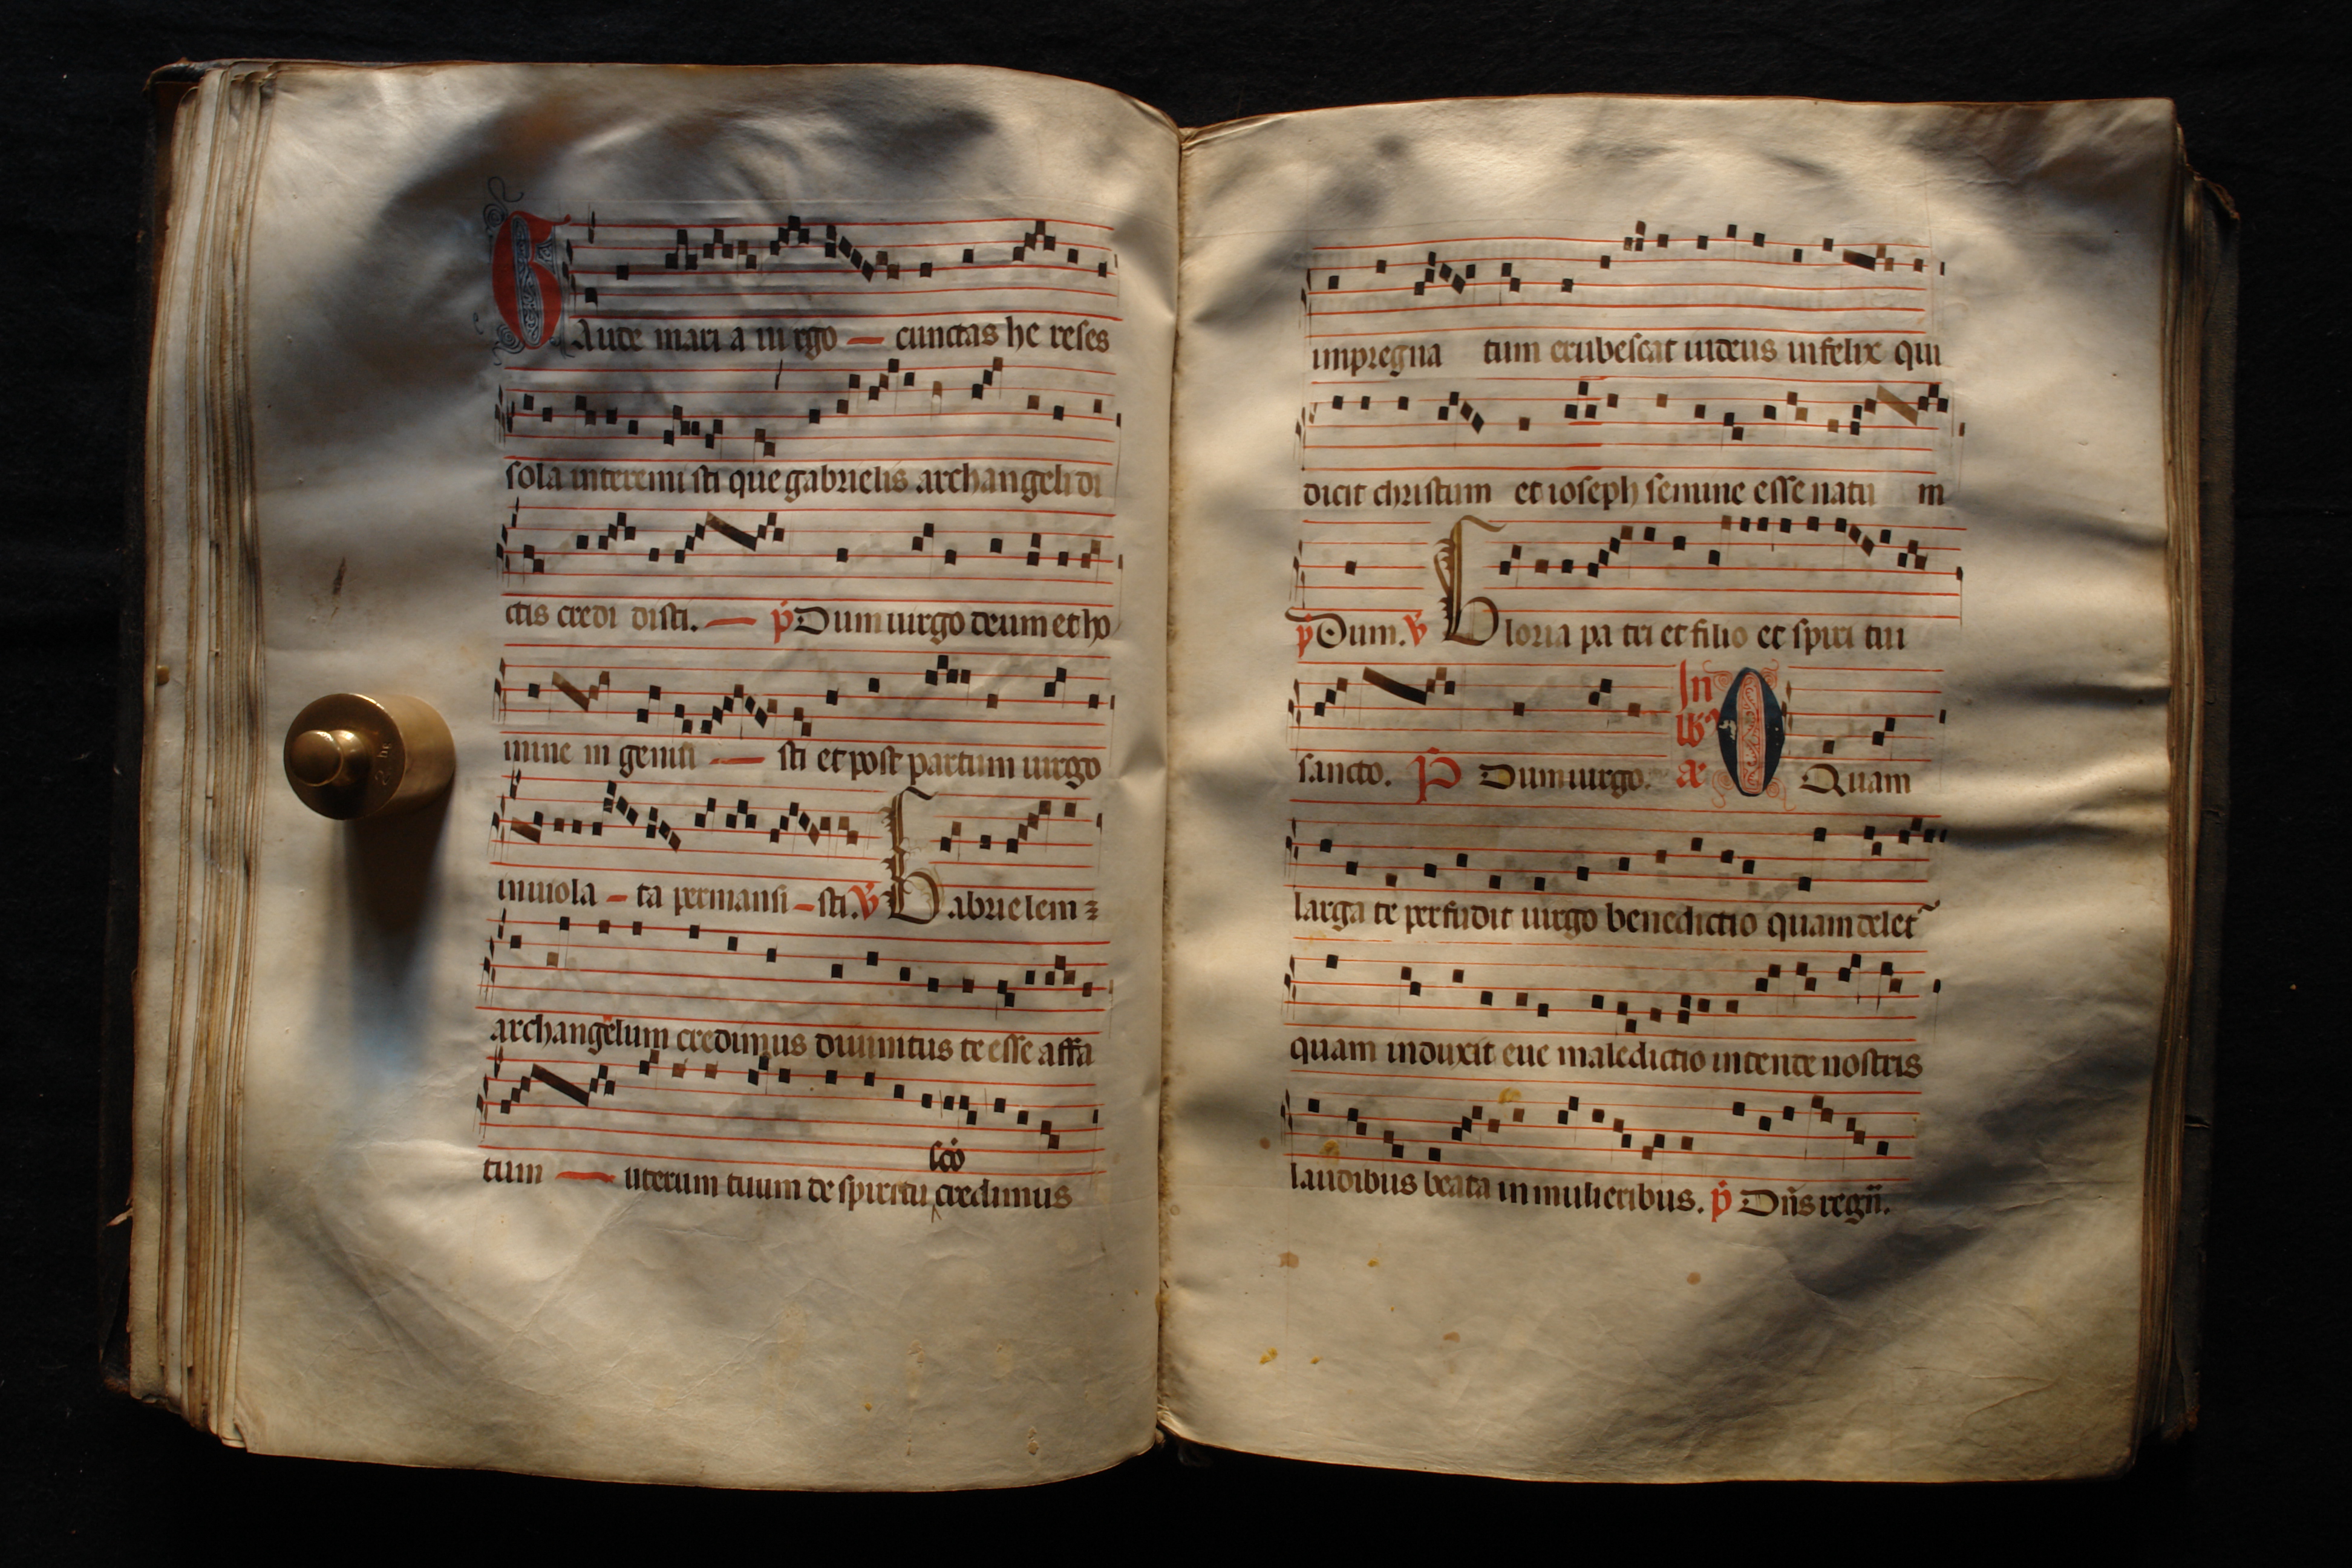 GAude mari a uirgo — cunctas he reses
sola interemi sti que gabrielis archangeli di
ctis credi disti. — p Dum uirgo deum et ho
mine m genui — sti et post partum uirgo
inuiola – ta permansi – sti. V Gabrielem
archangelum credimus diuinitus te esse affa
tum — uterum tuum de spiritu credimus
sco
impregna tum erubescat iudeus infelix qui
dicit christum et ioseph semine esse natu m
p Dum. V Gloria pa tri et filio et spiri tui
sancto. P Dum uirgo. In O Quam
larga te perfudit uirgo benedictio quam delet
quam induxit eue maledictio intende nostris
laudibus beata in mulieribus. p Dns regn.